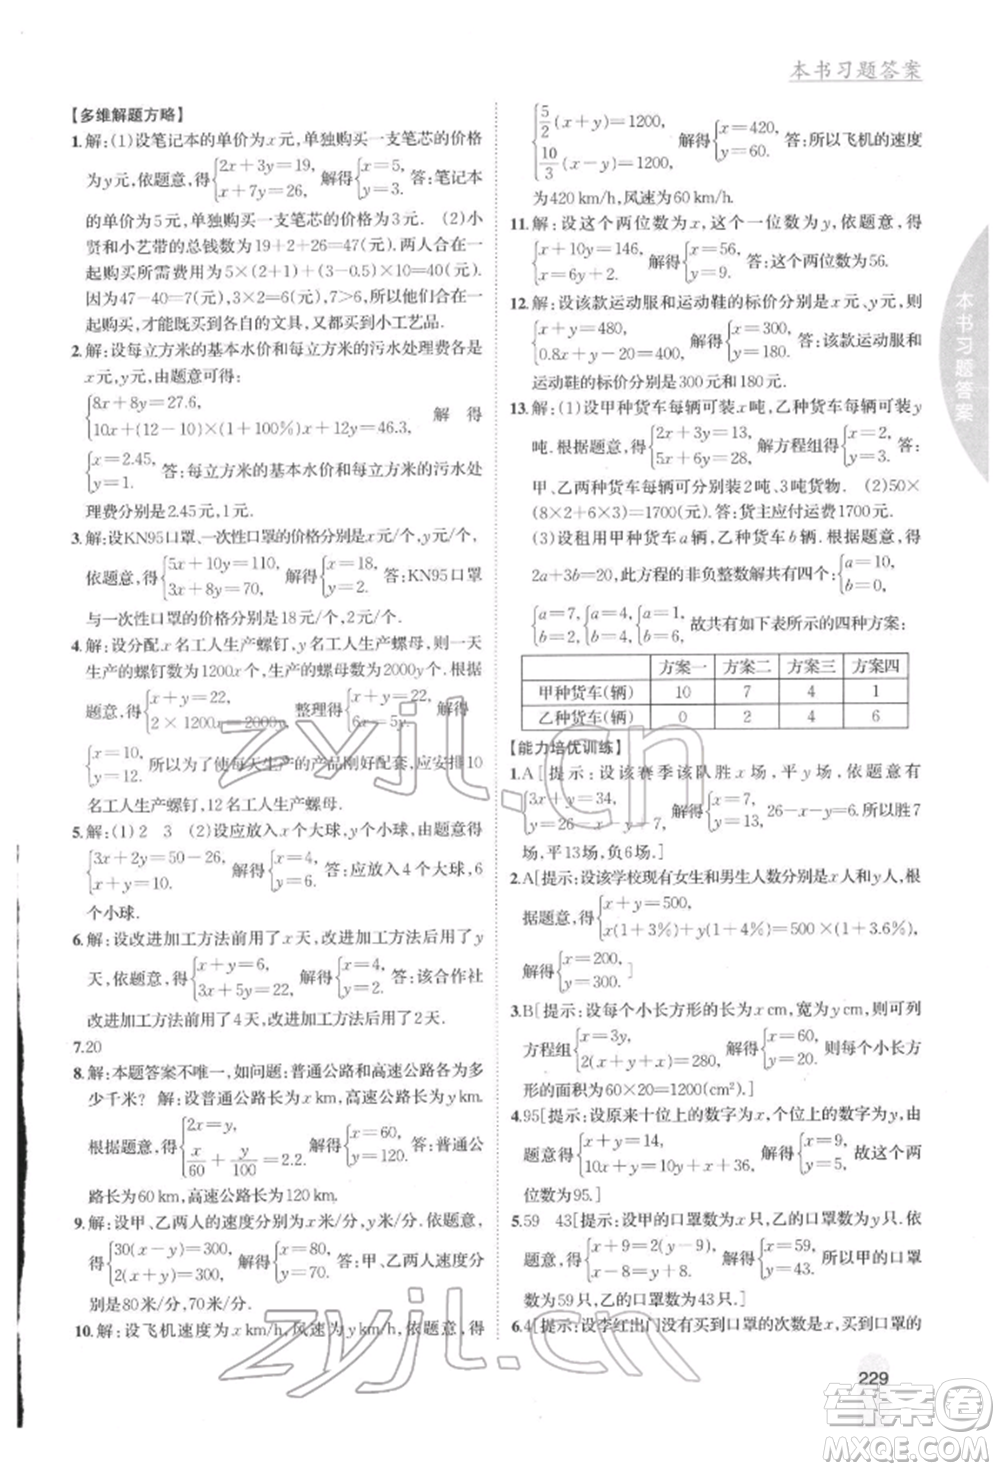 本书习题答案
【多维解题方略】
1.解:(1)设笔记本的单价为x元,单独购买一支笔芯的价格
为y元,依题意,得{2x+3y=19, x+7y=26, 解得{x=5, y=3. 答:笔记本
的单价为5元,单独购买一支笔芯的价格为3元. (2)小
贤和小艺带的总钱数为19+2+26=47(元).两人合在一
起购买所需费用为5×(2+1)+(3-0.5)×10=40(元).
因为47-40=7(元),3×2=6(元),7>6,所以他们合在一
起购买,才能既买到各自的文具,又都买到小工艺品.
2.解:设每立方米的基本水价和每立方米的污水处理费各是
x元,y元,由题意可得:
{8x+8y=27.6, 10x+(12-10)×(1+100%)x+12y=46.3, 解 得
{x=2.45, y=1. 答:每立方米的基本水价和每立方米的污水处
理费分别是2.45元,1元.
3.解:设KN95口罩、一次性口罩的价格分别是x元、y元,
依题意,得{5x+10y=110, 3x+8y=70, 解得{x=18, y=2. 答:KN95口罩
与一次性口罩的价格分别是18元/个,2元/个.
4.解:设分配x名工人生产螺钉,y名工人生产螺母,则一天
生产的螺钉数为1200x个,生产的螺母数为2000y个.根据
题意,得{x+y=22, 2×1200x=2000y, 整理得{x+y=22, 6x=5y. 解得
{x=10, y=12. 所以为了使每天生产的产品刚好配套,应安排10
名工人生产螺钉,12名工人生产螺母.
5.解:(1)2 3 (2)设应放入x个大球,y个小球,由题意,得
{3x+2y=50-26, x+y=10. 解得{x=4, y=6. 答:应放入4个大球,6
个小球.
6.解:设改进加工方法前用了x天,改进加工方法后用了y
天,依题意,得{x+y=6, 3x+5y=22, 解得{x=4, y=2. 答:该合作社
改进加工方法前用了4天,改进加工方法后用了2天.
7.20
8.解:本题答案不唯一,如问题:普通公路和高速公路各为多
少千米? 解:设普通公路长为x km,高速公路长为y km.
根据题意,得{2x=y, x/60+y/100=2.2. 解得{x=60, y=120. 答:普通公
路长为60 km,高速公路长为120 km.
9.解:设甲、乙两人的速度分别为x米/分,y米/分,依题意,得
{30(x-y)=300, 2(x+y)=300, 解得{x=80, y=70. 答:甲、乙两人速度分
别是80米/分,70米/分.
10.解:设飞机速度为x km/h,风速为y km/h,依题意,得
{5/2(x+y)=1200, 10/3(x-y)=1200, 解得{x=420, y=60. 答:所以飞机的速度
为420 km/h,风速为60 km/h.
11.解:设这个两位数为x,这个一位数为y,依题意,得
{x+10y=146, x=6y+2. 解得{x=56, y=9. 答:这个两位数为56.
12.解:设该款运动服和运动鞋的标价分别是x元、y元,根据题意,得
{x+y=480, 0.8x+y=420, 解得{x=300, y=180. 答:该款运动服和
运动鞋的标价分别是300元和180元.
13.解:(1)设甲种货车每辆可装x吨,乙种货车每辆可装y
吨.根据题意,得{2x+3y=13, 5x+6y=28, 解方程组得{x=2, y=3. 答:
甲、乙两种货车每辆可分别装2吨、3吨货物. (2)50×
(8×2+6×3)=1700(元).答:货主应付运费1700元.
(3)设租用甲种货车a辆,乙种货车b辆.根据题意,得
2a+3b=20,此方程的非负整数解共有四个:{a=10, b=0,
{a=7, b=2, {a=4, b=4, {a=1, b=6, 故共有如下表所示的四种方案:
方案一 方案二 方案三 方案四
甲种货车(辆) 10 7 4 1
乙种货车(辆) 0 2 4 6
【能力培优训练】
1.A[提示:设该赛季该队胜x场,平y场,依题意有
{3x+y=34, y=26-x-y+7, 解得{x=7, y=13. 26-x-y=6.所以胜7
场,平13场,负6场.]
2.A[提示:设该学校现有女生和男生人数分别是x人、y人,根
据题意,{x+y=500, x(1+3%)+y(1+4%)=500×(1+3.6%),
解得{x=200, y=300.]
3.B[提示:设每个小长方形的长为x cm,宽为y cm,可列
方程组{x=3y, 2(x+y+x)=280, 解得{x=60, y=20. 则每个小长方
形的面积为60×20=1200(cm²).]
4.95[提示:设原来十位上的数字为x,个位上的数字为y,根据
题意,得{x+y=14, 10x+y-(10y+x)=36, 解得{x=9, y=5. 所以原来的两
位数为95.]
5.59 43[提示:设甲的口罩数为x只,乙的口罩数为y只,依
题意,得{x+9=2(y-9), x-8=y+8, 解得{x=59, y=43. 所以甲的口罩
数为59只,乙的口罩数为43只.]
6.4[提示:设李红出门没有买到口罩的次数是x,买到口罩的
本书习题答案
229
zyjl.cn
zyjl.cn
答案圈
MXQE.COM